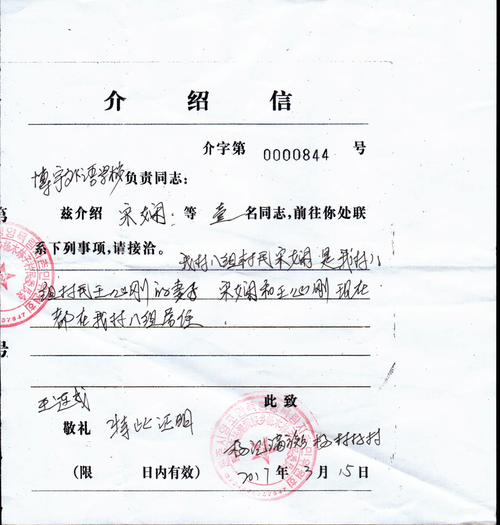 介绍信
介字第 0000844 号
博宇外语学校负责同志：
兹介绍 宋娴 等 壹 名同志，前往你处联
系下列事项，请接洽。
我村八组村民宋娴是我村八
组村民王心刚的妻子 宋娴和王心刚现在
都在我村八组居住
第
号
王连成
此致
敬礼 特此证明
杨村村
(限 日内有效) 2017年3月15日